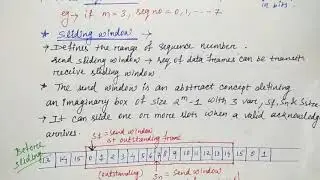 eg → if m = 3, seq no = 0, 1, --- 7
in bits.
* Sliding window →
→ Defines the range of sequence number.
send sliding window → seq of data frames can be transmit
receive sliding window
→ The send window is an abstract concept defining
an imaginary box of size 2^m - 1 with 3 var, Sf, Sn & Ssize
→ It can slide one or more slots when a valid acknowledg
arrives.
Before sliding
Sf = send window
1st outstanding frame
13 14 15 0 1 2 3 4 5 6 7 8 9 10 11 12 13 14 15 0 1
(outstanding)
Sn = send window